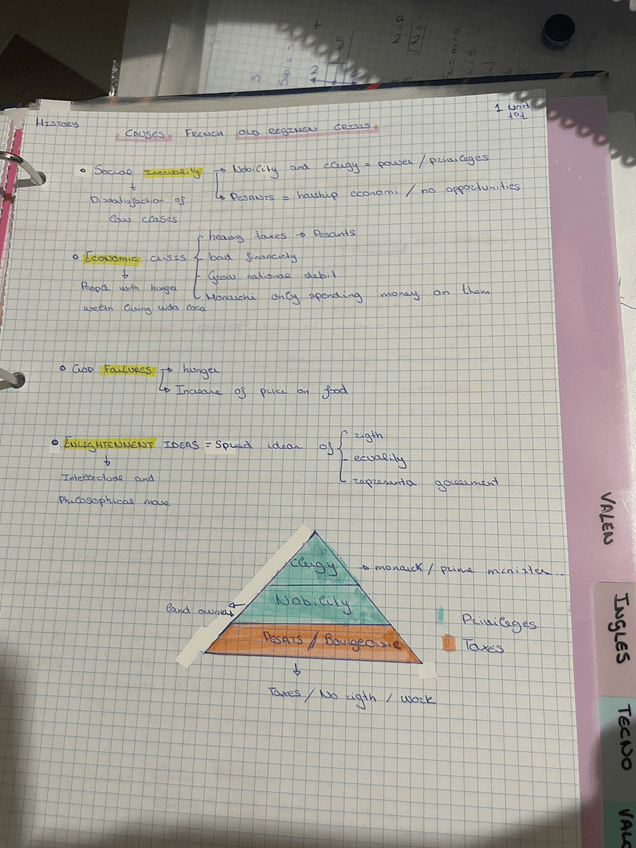 HISTORY
1 Unit
CAUSES FRENCH OLD REGIMEN CRISIS.
Social Inecuality → Nobility and clergy = power / privileges
→ PESANTS = harship economi / no opportunities
Dissatisfaction of
low clases
ECONOMIC crisis
heavy taxes → Pesants
bad financiety
Grow national debit
Monarchi only spending money on them
People with hunger
FAILURES → hunger
→ Increase of price on food
ENLIGHTENMENT IDEAS = Spread ideas of
rigth
ecuality
representa goverment
Intellectual and
Philosophical move
Clergy → monarck / prime minister...
Nobility
land owner
PESATS / Bourgeoisie
Privileges
Taxes
Taxes / No rigth / work
VALEN
INGLES
TECNO